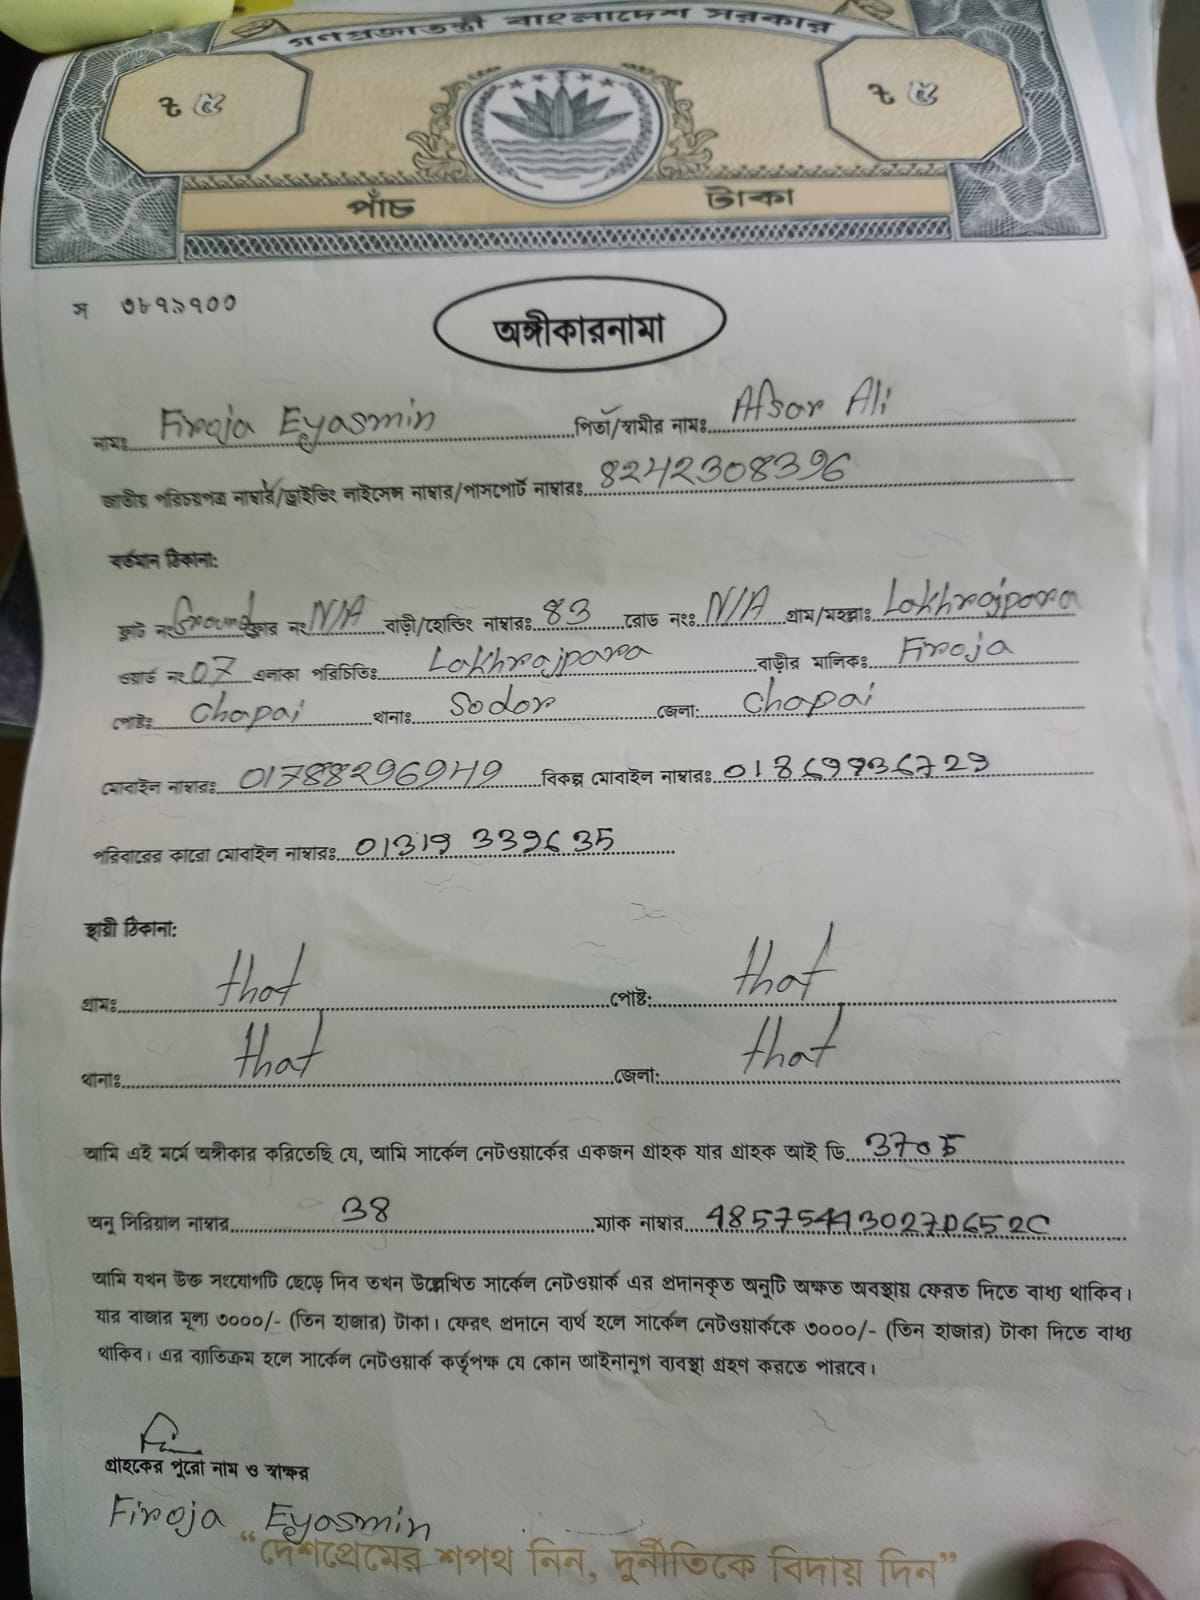 গণপ্রজাতন্ত্রী বাংলাদেশ সরকার
৳ ৫ ৳ ৫
পাঁচ টাকা
স ৩৮৭১৭০০
অঙ্গীকারনামা
নামঃ Firoja Eyasmin পিতা/স্বামীর নামঃ Afsar Ali
জাতীয় পরিচয়পত্র নাম্বার/ড্রাইভিং লাইসেন্স নাম্বার/পাসপোর্ট নাম্বারঃ 8242308396
বর্তমান ঠিকানা:
ফ্লাট নং Ground ফ্লোর নং N/A বাড়ী/হোল্ডিং নাম্বারঃ 83 রোড নংঃ N/A গ্রাম/মহল্লাঃ Lakhrajpara
ওয়ার্ড নং 07 এলাকা পরিচিতিঃ Lakhrajpara বাড়ীর মালিকঃ Firoja
পোষ্টঃ Chapai থানাঃ Sodor জেলা: Chapai
মোবাইল নাম্বারঃ 01788296949 বিকল্প মোবাইল নাম্বারঃ
পরিবারের কারো মোবাইল নাম্বারঃ 01319 339635
স্থায়ী ঠিকানা:
গ্রামঃ that পোষ্ট: that
থানাঃ that জেলা: that
আমি এই মর্মে অঙ্গীকার করিতেছি যে, আমি সার্কেল নেটওয়ার্কের একজন গ্রাহক যার গ্রাহক আই ডি 3705
অনু সিরিয়াল নাম্বার 38 ম্যাক নাম্বার 485754430270652C
আমি যখন উক্ত সংযোগটি ছেড়ে দিব তখন উল্লেখিত সার্কেল নেটওয়ার্ক এর প্রদানকৃত অনুটি অক্ষত অবস্থায় ফেরত দিতে বাধ্য থাকিব।
যার বাজার মূল্য ৩০০০/- (তিন হাজার) টাকা। ফেরৎ প্রদানে ব্যর্থ হলে সার্কেল নেটওয়ার্ককে ৩০০০/- (তিন হাজার) টাকা দিতে বাধ্য
থাকিব। এর ব্যতিক্রম হলে সার্কেল নেটওয়ার্ক কর্তৃপক্ষ যে কোন আইনানুগ ব্যবস্থা গ্রহণ করতে পারবে।
গ্রাহকের পুরো নাম ও স্বাক্ষর
Firoja Eyasmin
“দেশপ্রেমের শপথ নিন, দুর্নীতিকে বিদায় দিন”